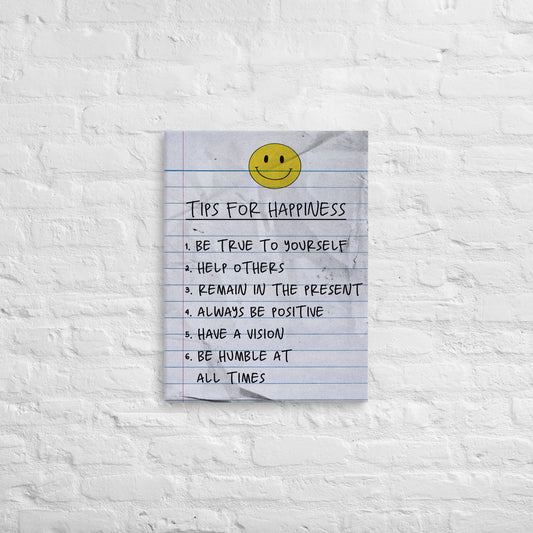 TIPS FOR HAPPINESS
1. BE TRUE TO YOURSELF
2. HELP OTHERS
3. REMAIN IN THE PRESENT
4. ALWAYS BE POSITIVE
5. HAVE A VISION
6. BE HUMBLE AT
ALL TIMES